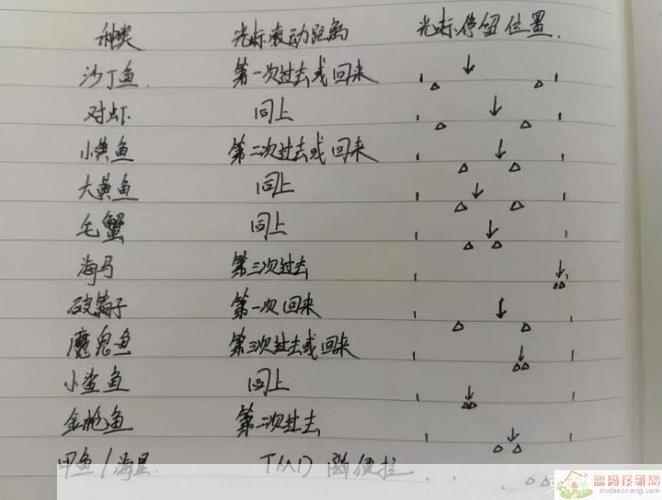 种类 光标滚动距离 光标停留位置.
沙丁鱼. 第一次过去或回来
对虾 同上
小黄鱼 第二次过去或回来
大黄鱼 同上
毛蟹 同上
海马 第三次过去
破鞋子 第一次回来
魔鬼鱼 第三次过去或回来
小鲨鱼 同上
金枪鱼 第二次过去
甲鱼/海星 TMD 随便拉
源码资源网